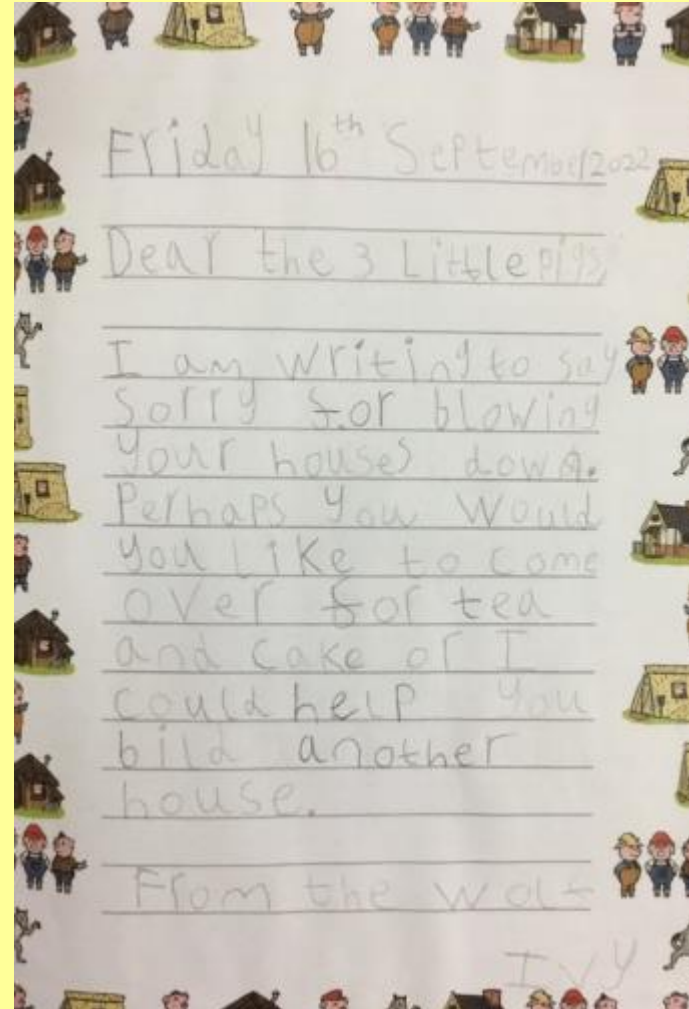 Friday 16th September 2022
Dear the 3 Little pigs,
I am writing to say
sorry for blowing
your houses down.
Perhaps you would
you Like to come
over for tea
and cake or I
could help you
bild another
house.
From the wolf
Ivy